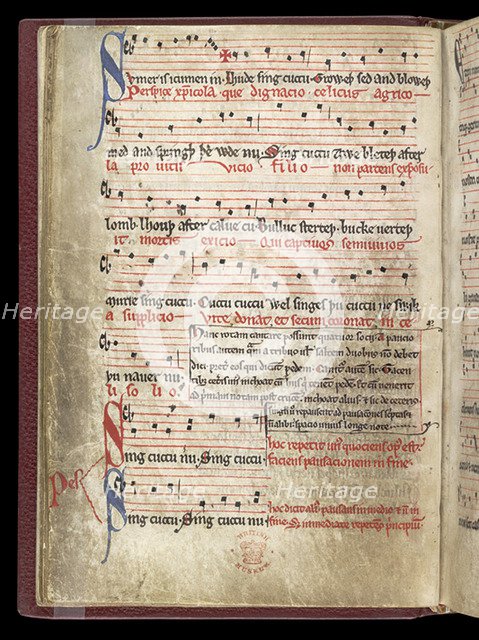 Sumer is icumen in. Lhude sing cuccu. Groweþ sed and bloweþ
Perspice xp̄icola que dignacio celicus agrico
med and springþ þe wde nu. Sing cuccu Awe bleteþ after
la pro uitis vicio filio non parcens exposu
lomb. lhouþ after calue cu. Bulluc sterteþ. bucke uerteþ
it mortis exicio Qui captiuos semiuiuos
murie sing cuccu. Cuccu cuccu Wel singes þu cuccu ne swik
a supplicio Vite donat et secum coronat in ce
þu nauer nu.
li solio.
Hanc rotam cantare possunt quatuor socii. A paucio
ribus autem quam a tribus uel saltem duobus non debet
dici. preter eos qui dicunt pedem. Canitur autem sic. Tacen
tibus ceteris unus inchoat cum hiis qui tenent pedem. et cum uenerit
ad primam notam post crucem. inchoat alius. et sic de ceteris.
singuli uero repausent ad pausaciones scriptas.
non alibi. spacio unius longe note.
Sing cuccu nu. Sing cuccu.
hoc repetit unus quociens opus est.
faciens pausacionem in fine.
Pes
Sing cuccu. Sing cuccu nu
hoc dicit alius. pausans in medio et non in
fine. Set immediate repetens principium.
BRITISH
MUSEUM
Heritage Heritage
Heritage
Heritage
Heritage